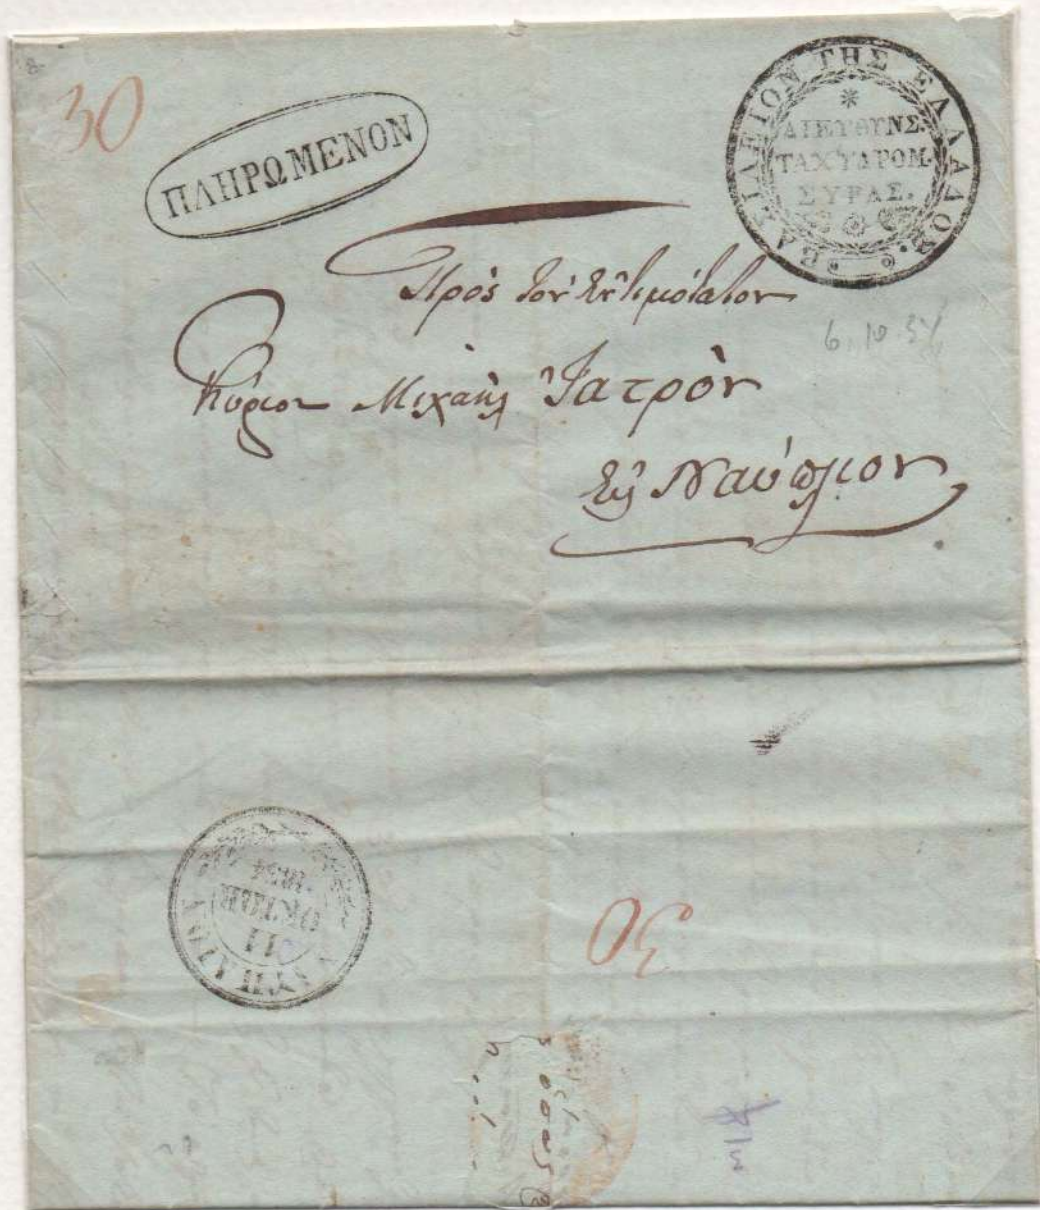 30
ΠΛΗΡΩΜΕΝΟΝ
ΒΑΣΙΛΕΙΟΝ ΤΗΣ ΕΛΛΑΔΟΣ.
ΔΙΕΥΘΥΝΣ.
ΤΑΧΥΔΡΟΜ.
ΣΥΡΑΣ.
Πρὸς τὸν ἐντιμότατον
Κύριον Μιχαὴλ Ἰατρὸν
εἰς Ναύπλιον
6.10.34
ΝΑΥΠΛΙΟΝ
11
ΟΚΤΩΒ
1834
30